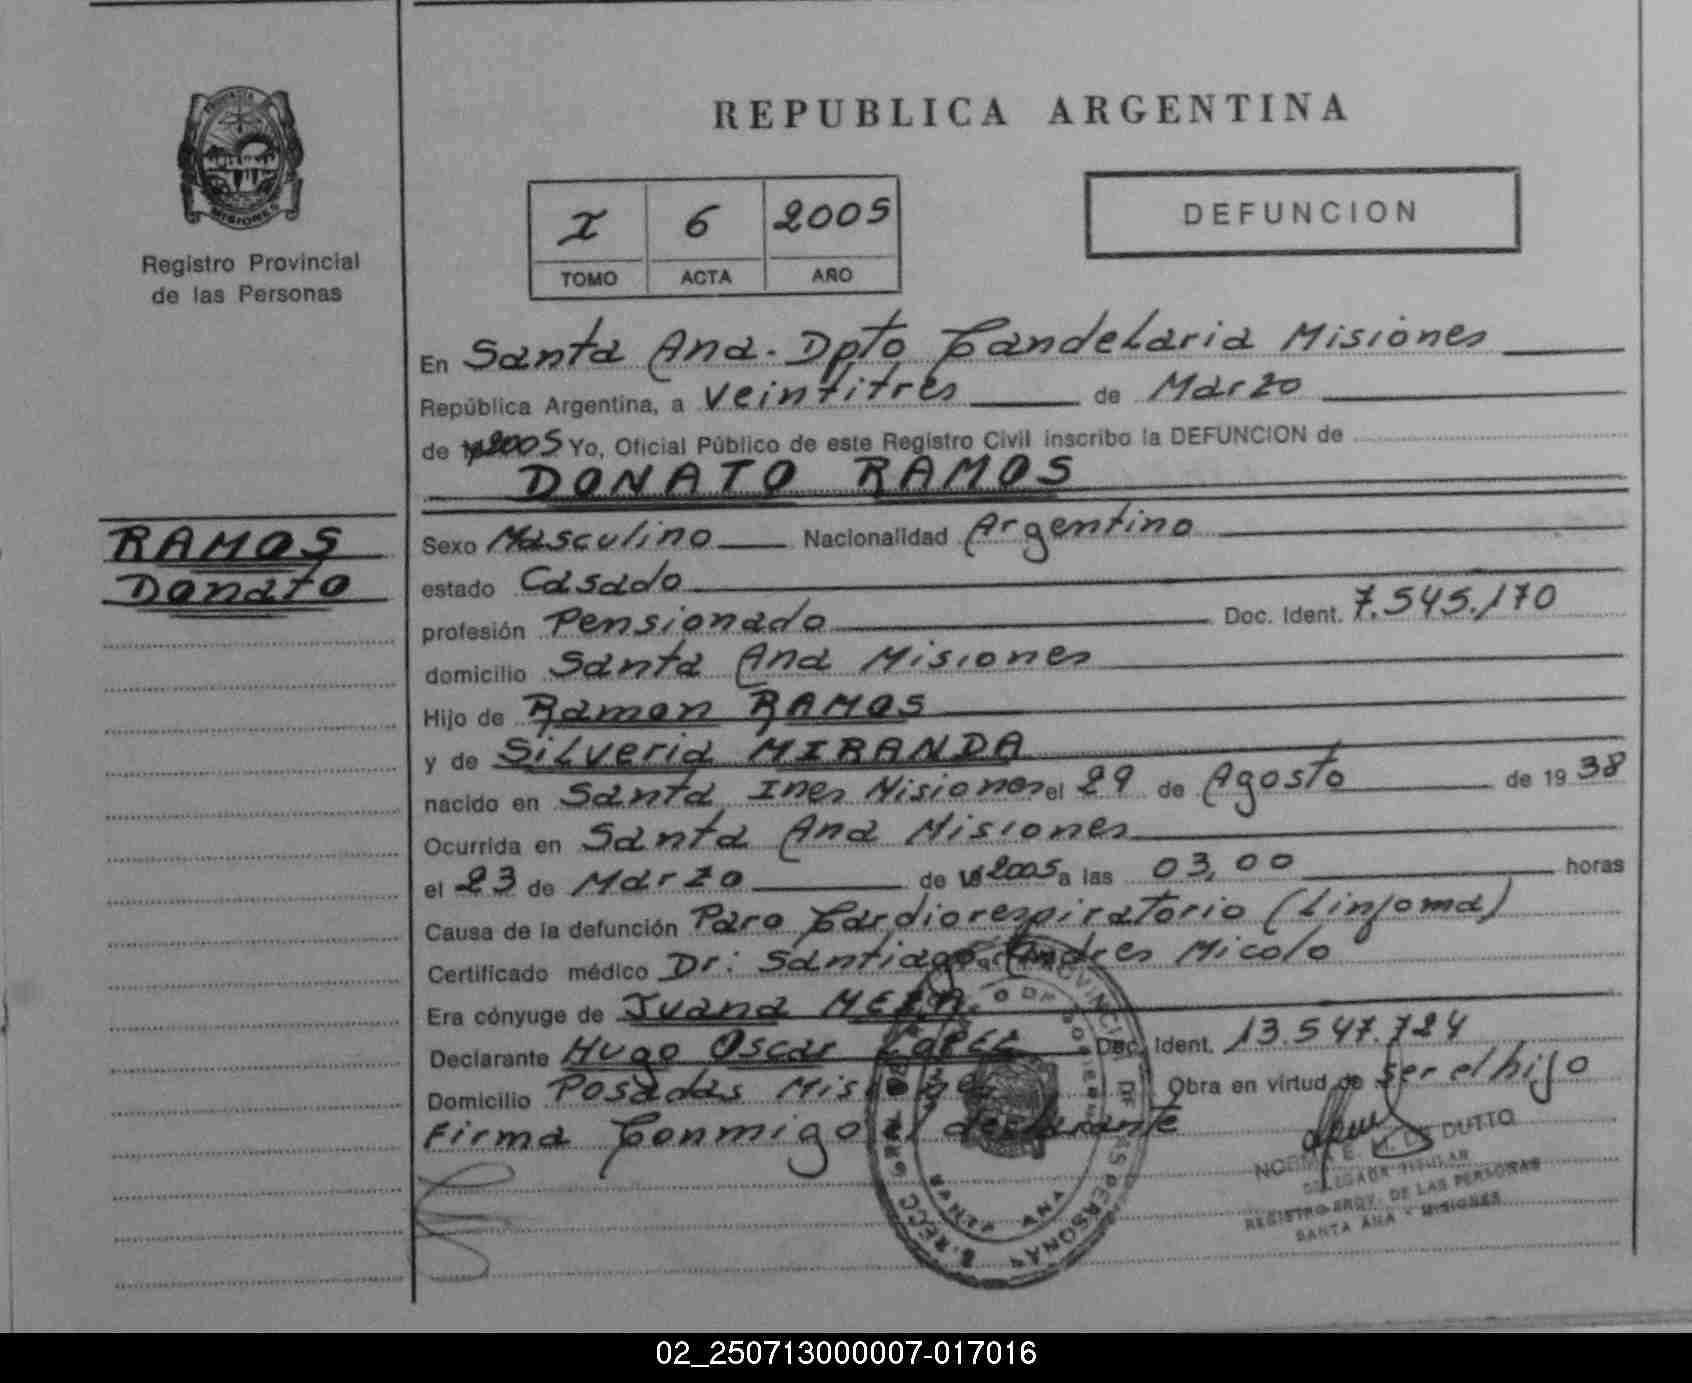 PROVINCIA
MISIONES
Registro Provincial
de las Personas
REPUBLICA ARGENTINA
I 6 2005
TOMO ACTA AÑO
DEFUNCION
En Santa Ana. Dpto Candelaria Misiones
República Argentina, a veintitres de Marzo
de 2005 Yo, Oficial Público de este Registro Civil inscribo la DEFUNCION de
DONATO RAMOS
RAMOS
Donato
Sexo Masculino Nacionalidad Argentino
estado Casado
profesión Pensionado Doc. Ident. 7.545.170
domicilio Santa Ana Misiones
Hijo de Ramon RAMOS
y de Silveria MIRANDA
nacido en Santa Ines Misiones el 29 de Agosto de 1938
Ocurrida en Santa Ana Misiones
el 23 de Marzo de 2005 a las 03,00 horas
Causa de la defunción Paro Cardiorespiratorio (Linfoma)
Certificado médico Dr: Santiago Andres Micolo
Era cónyuge de Juana
Declarante Hugo Oscar Doc. Ident. 13.547.724
Domicilio Posadas Misiones Obra en virtud de ser el hijo
Firma Conmigo el declarante
NORMA E. DUTTO
DELEGADA TITULAR
REGISTRO PROV. DE LAS PERSONAS
SANTA ANA - MISIONES
SANTA ANA
02_250713000007-017016